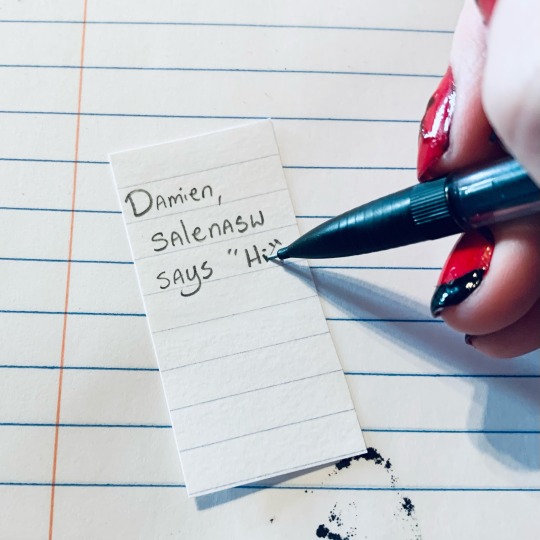 Damien,
salenasw
says "Hi"